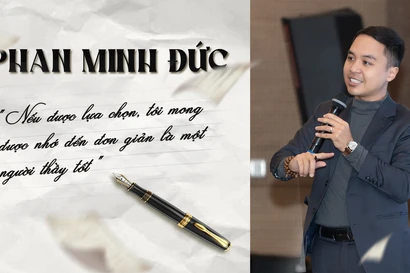 PHAN MINH ĐỨC
"Nếu được lựa chọn, tôi mong
được nhớ đến đơn giản là một
người thầy tốt"